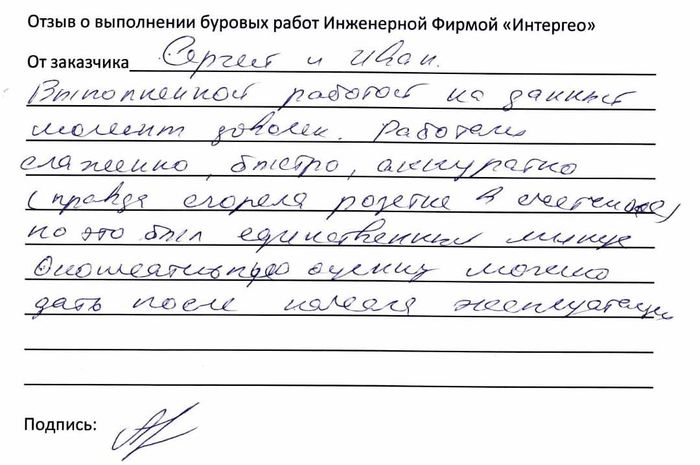 Отзыв о выполнении буровых работ Инженерной Фирмой «Интергео»
От заказчика Сергей и Иван.
Выполненной работой на данный
момент доволен. Работали
слаженно, быстро, аккуратно
(правда сгорела розетка в счетчике)
но это был единственный минус
Окончательную оценку можно
дать после начала эксплуатации
Подпись: